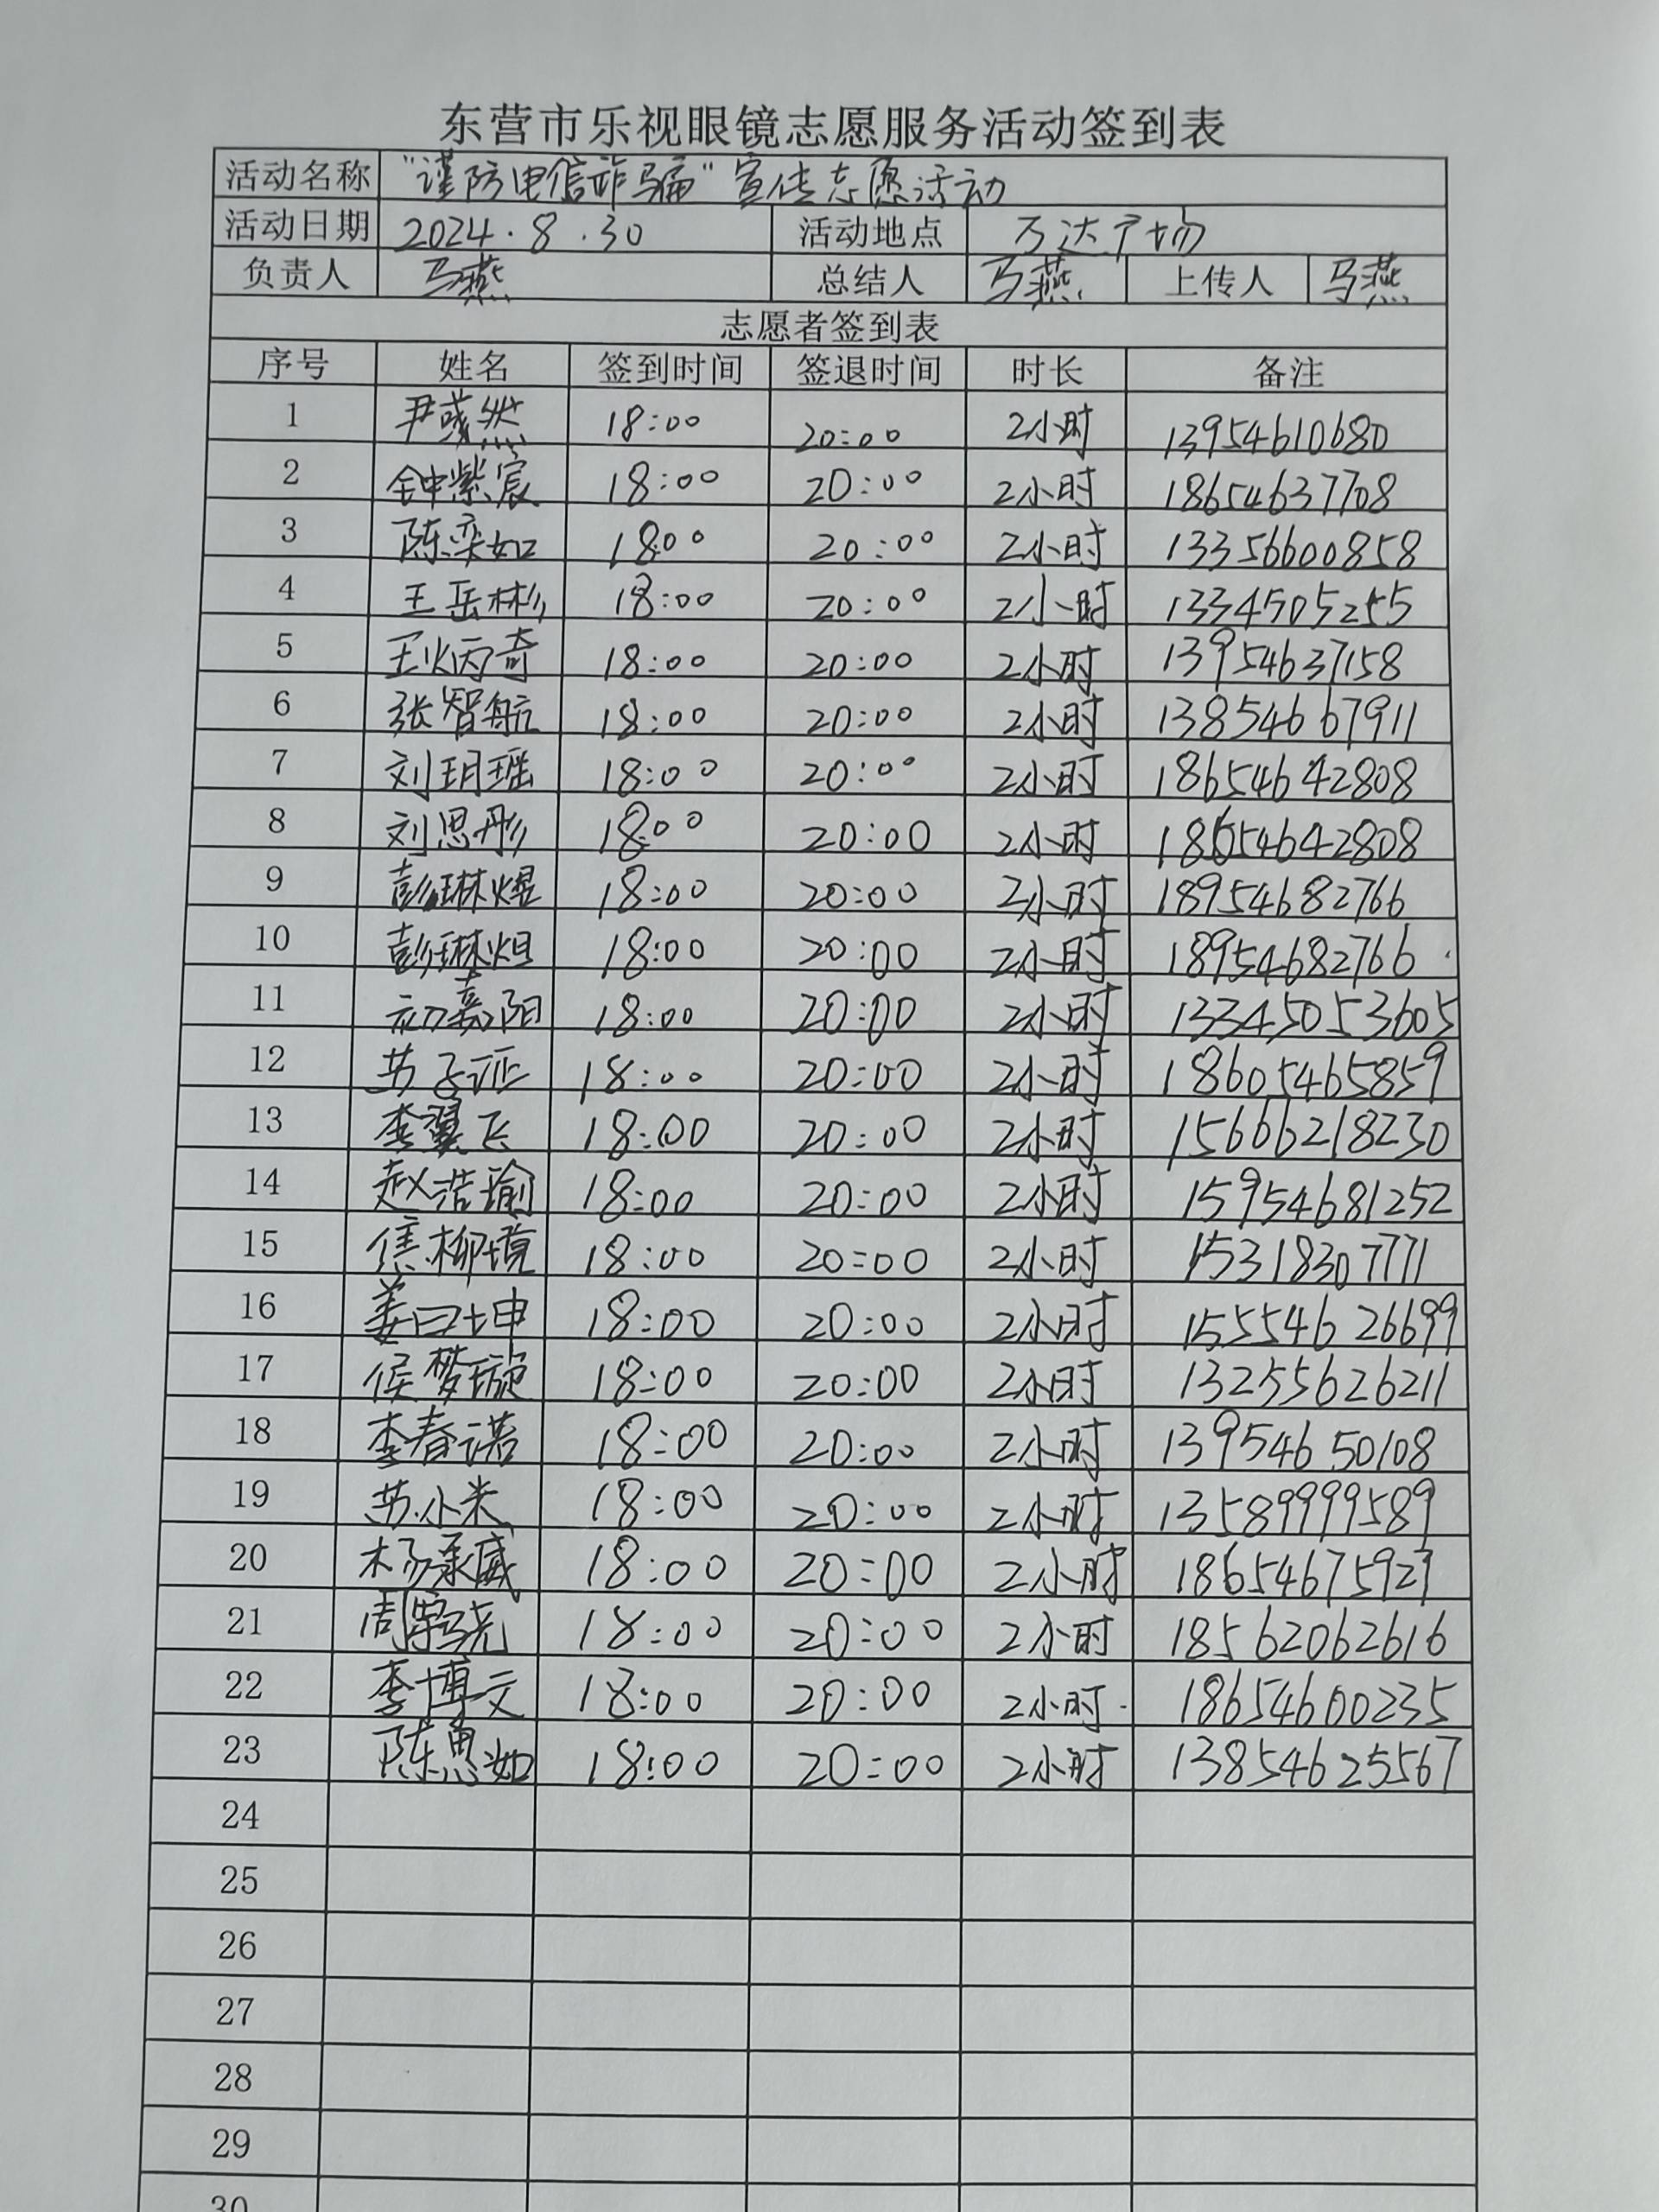 东营市乐视眼镜志愿服务活动签到表
活动名称 "谨防电信诈骗"宣传志愿活动
活动日期 2024.8.30 活动地点 万达广场
负责人 马燕 总结人 马燕 上传人 马燕
志愿者签到表
序号 姓名 签到时间 签退时间 时长 备注
1 尹彧然 18:00 20:00 2小时 13954610680
2 钟紫宸 18:00 20:00 2小时 18654637708
3 陈奕如 18:00 20:00 2小时 13356600858
4 王岳彬 18:00 20:00 2小时 1334505255
5 王炳奇 18:00 20:00 2小时 13954637158
6 张智航 18:00 20:00 2小时 13854667911
7 刘玥瑶 18:00 20:00 2小时 18654642808
8 刘思彤 18:00 20:00 2小时 18654642808
9 彭琳煜 18:00 20:00 2小时 18954682766
10 彭琳烜 18:00 20:00 2小时 18954682766
11 初嘉阳 18:00 20:00 2小时 13345053605
12 苏子证 18:00 20:00 2小时 18605465859
13 李翼飞 18:00 20:00 2小时 15666218230
14 赵浩瑜 18:00 20:00 2小时 15954681252
15 焦柳境 18:00 20:00 2小时 15318307771
16 姜曰坤 18:00 20:00 2小时 15554626699
17 侯梦璇 18:00 20:00 2小时 13255626211
18 李春诺 18:00 20:00 2小时 13954650108
19 苏小米 18:00 20:00 2小时 13589999589
20 杨承威 18:00 20:00 2小时 18654675927
21 18:00 20:00 2小时 18562062616
22 李博文 18:00 20:00 2小时 18654600235
23 陈思如 18:00 20:00 2小时 13854625567
24
25
26
27
28
29
30